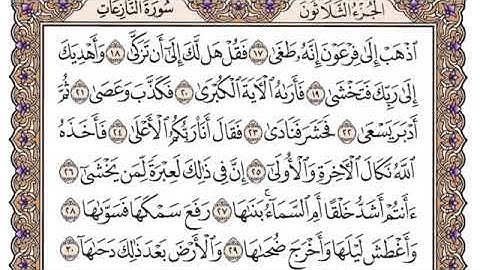 الجزء الثلاثون
سورة النازعات
ٱذْهَبْ إِلَىٰ فِرْعَوْنَ إِنَّهُۥ طَغَىٰ ١٧ فَقُلْ هَل لَّكَ إِلَىٰٓ أَن تَزَكَّىٰ ١٨ وَأَهْدِيَكَ
إِلَىٰ رَبِّكَ فَتَخْشَىٰ ١٩ فَأَرَىٰهُ ٱلْءَايَةَ ٱلْكُبْرَىٰ ٢٠ فَكَذَّبَ وَعَصَىٰ ٢١ ثُمَّ
أَدْبَرَ يَسْعَىٰ ٢٢ فَحَشَرَ فَنَادَىٰ ٢٣ فَقَالَ أَنَا۠ رَبُّكُمُ ٱلْأَعْلَىٰ ٢٤ فَأَخَذَهُ
ٱللَّهُ نَكَالَ ٱلْءَاخِرَةِ وَٱلْأُولَىٰٓ ٢٥ إِنَّ فِى ذَٰلِكَ لَعِبْرَةً لِّمَن يَخْشَىٰٓ ٢٦
ءَأَنتُمْ أَشَدُّ خَلْقًا أَمِ ٱلسَّمَآءُ ۚ بَنَىٰهَا ٢٧ رَفَعَ سَمْكَهَا فَسَوَّىٰهَا ٢٨
وَأَغْطَشَ لَيْلَهَا وَأَخْرَجَ ضُحَىٰهَا ٢٩ وَٱلْأَرْضَ بَعْدَ ذَٰلِكَ دَحَىٰهَآ ٣٠